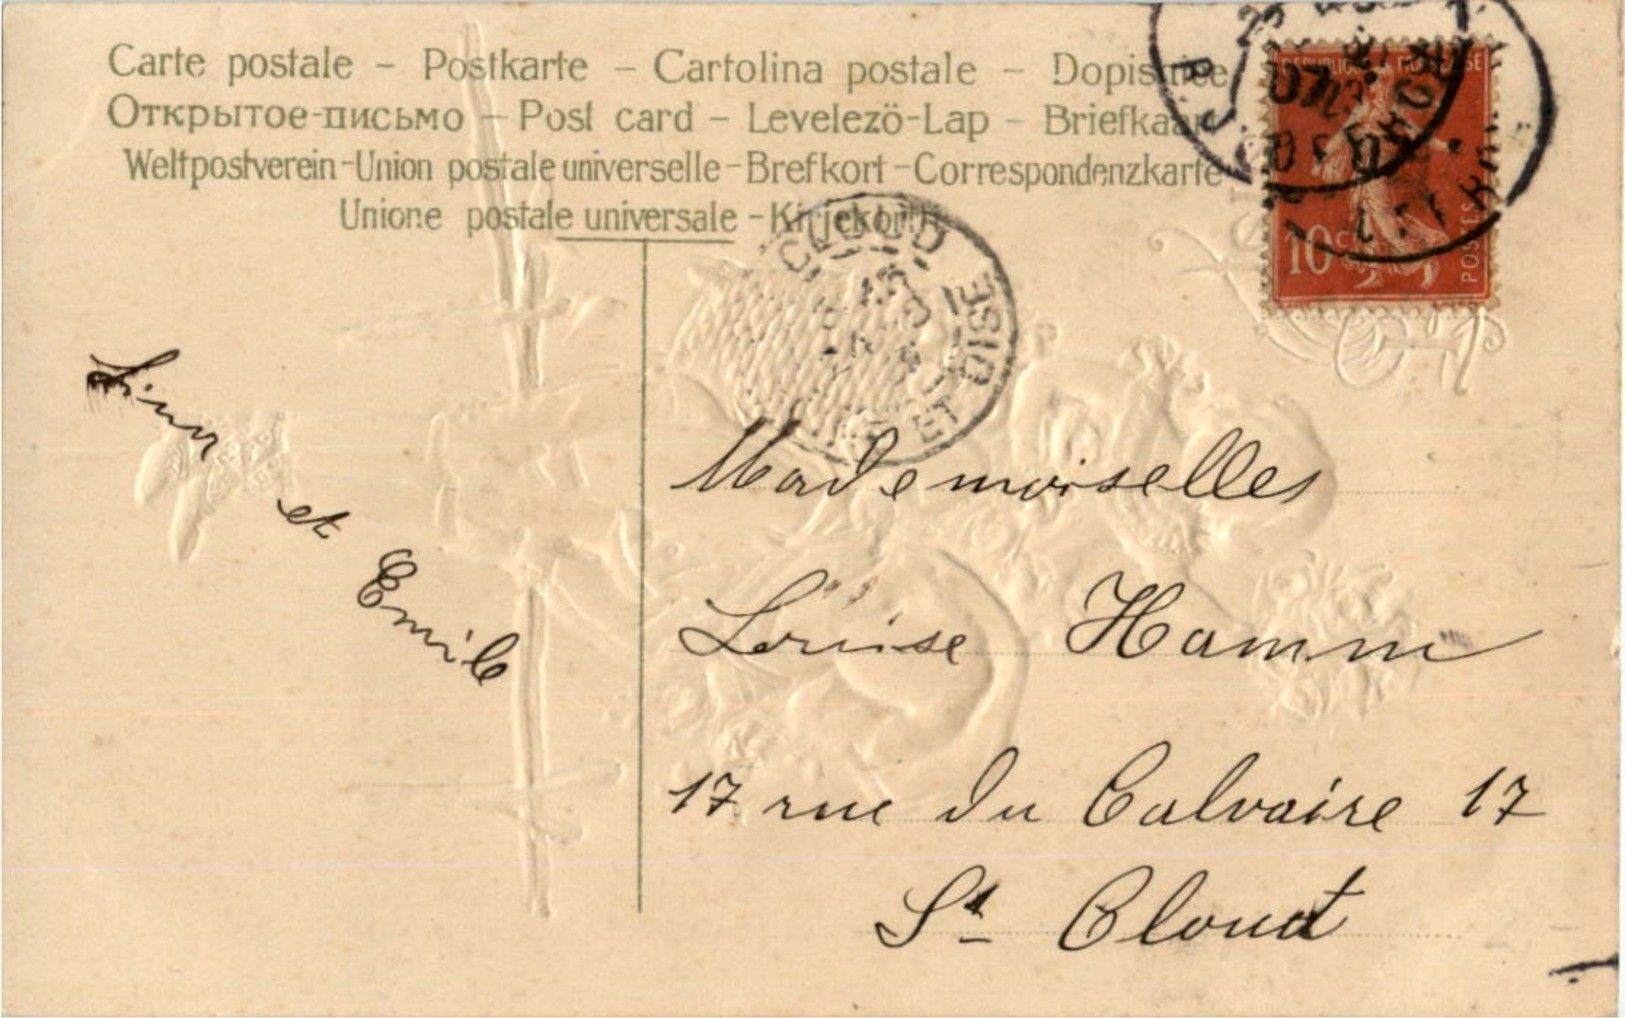 Carte postale – Postkarte – Cartolina postale – Dopisnice
Открытое-письмо – Post card – Levelezö-Lap – Briefkaart
Weltpostverein-Union postale universelle-Brefkort-Correspondenzkarte
Unione postale universale -Kirjekortti
REPUBLIQUE FRANÇAISE
10
POSTES
CLOUD
ET OISE
et Emile
Mademoiselles
Louise Hamm
17 rue du Calvaire 17
St Cloud